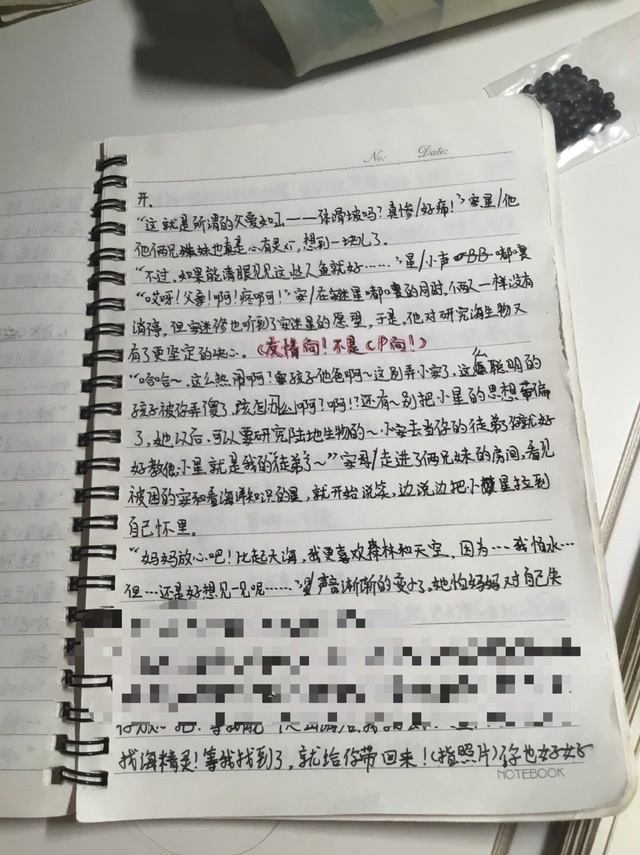 No:    Date:
开。
“这就是所谓的父爱如山——体滑坡吗？真惨/好痛！”安星/他
他俩兄妹也真是心有灵犀，想到一块儿了。
“不过，如果能清眼见见这些人鱼就好……”星/小声BB嘟囔
“哎呀！父亲！啊！疼啊啊！”安/在安迷星嘟囔的同时，俩人一样没有
消停，但安迷修也听到了安迷星的愿望，于是，他对研究海生物又
有了更坚定的决心。（友情向！不是CP向！）
“哈哈~，这么热闹啊？孩子他爸啊~这别弄小安了，这么聪明的
孩子被你弄傻了，该怎么办啊？啊！？还有~别把小星的思想带偏
了，她以后，可以要研究陆地生物的~小安去当你的徒弟你就好
好教他，小星就是我的徒弟了~”安母/走进了两兄妹的房间，看见
被困的安和看海洋知识的星，就开始说笑，边说边把小星拉到
自己怀里。
“妈妈放心吧！比起大海，我更喜欢森林和天空，因为…我怕水…
但…还是好想见一见呢……”星/声音渐渐的变小了，她怕妈妈对自己失
找海精灵！等我找到了，就给你带回来！（指照片）你也好好
NOTEBOOK